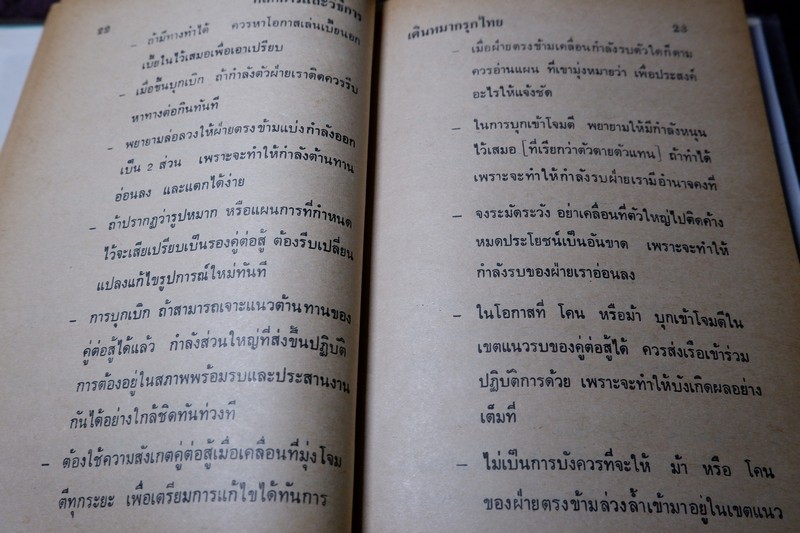 22 หลักการและวิธีการ
- ถ้ามีทางทำได้ ควรหาโอกาสเล่นเบี้ยนอก
เบี้ยในไว้เสมอเพื่อเอาเปรียบ
- เมื่อขึ้นบุกเบิก ถ้ากำลังตัวฝ่ายเราติดควรรีบ
หาทางต่อกินทันที
- พยายามล่อลวงให้ฝ่ายตรงข้ามแบ่งกำลังออก
เป็น 2 ส่วน เพราะจะทำให้กำลังต้านทาน
อ่อนลง และแตกได้ง่าย
- ถ้าปรากฏว่ารูปหมาก หรือแผนการที่กำหนด
ไว้จะเสียเปรียบเป็นรองคู่ต่อสู้ ต้องรีบเปลี่ยน
แปลงแก้ไขรูปการณ์ใหม่ทันที
- การบุกเบิก ถ้าสามารถเจาะแนวต้านทานของ
คู่ต่อสู้ได้แล้ว กำลังส่วนใหญ่ที่ส่งขึ้นปฏิบัติ
การต้องอยู่ในสภาพพร้อมรบและประสานงาน
กันได้อย่างใกล้ชิดทันท่วงที
- ต้องใช้ความสังเกตคู่ต่อสู้เมื่อเคลื่อนที่มุ่งโจม
ตีทุกระยะ เพื่อเตรียมการแก้ไขได้ทันการ
เดินหมากรุกไทย 23
- เมื่อฝ่ายตรงข้ามเคลื่อนกำลังรบตัวใดก็ตาม
ควรอ่านแผน ที่เขามุ่งหมายว่า เพื่อประสงค์
อะไรให้แจ้งชัด
- ในการบุกเข้าโจมตี พยายามให้มีกำลังหนุน
ไว้เสมอ [ที่เรียกว่าตัวตายตัวแทน] ถ้าทำได้
เพราะจะทำให้กำลังรบฝ่ายเรามีอำนาจคงที่
- จงระมัดระวัง อย่าเคลื่อนที่ตัวใหญ่ไปติดค้าง
หมดประโยชน์เป็นอันขาด เพราะจะทำให้
กำลังรบของฝ่ายเราอ่อนลง
- ในโอกาสที่ โคน หรือม้า บุกเข้าโจมตีใน
เขตแนวรบของคู่ต่อสู้ได้ ควรส่งเรือเข้าร่วม
ปฏิบัติการด้วย เพราะจะทำให้บังเกิดผลอย่าง
เต็มที่
- ไม่เป็นการบังควรที่จะให้ ม้า หรือ โคน
ของฝ่ายตรงข้ามล่วงล้ำเข้ามาอยู่ในเขตแนว